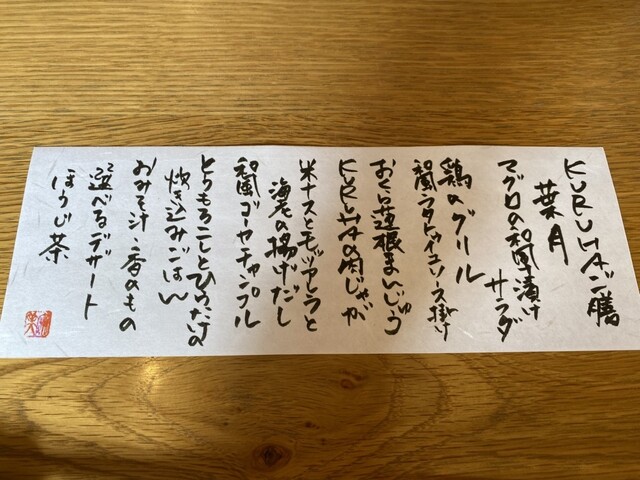 KURUHAご膳
葉月
マグロの和風漬け
サラダ
鶏のグリル
和風ラタトゥイユソース掛け
おくら蓮根まんじゅう
KURUHAの肉じゃが
米ナスとモッツァレラと
海老の揚げだし
和風ゴーヤチャンプル
とうもろこしとひらたけの
炊き込みごはん
おみそ汁・香のもの
選べるデザート
ほうじ茶